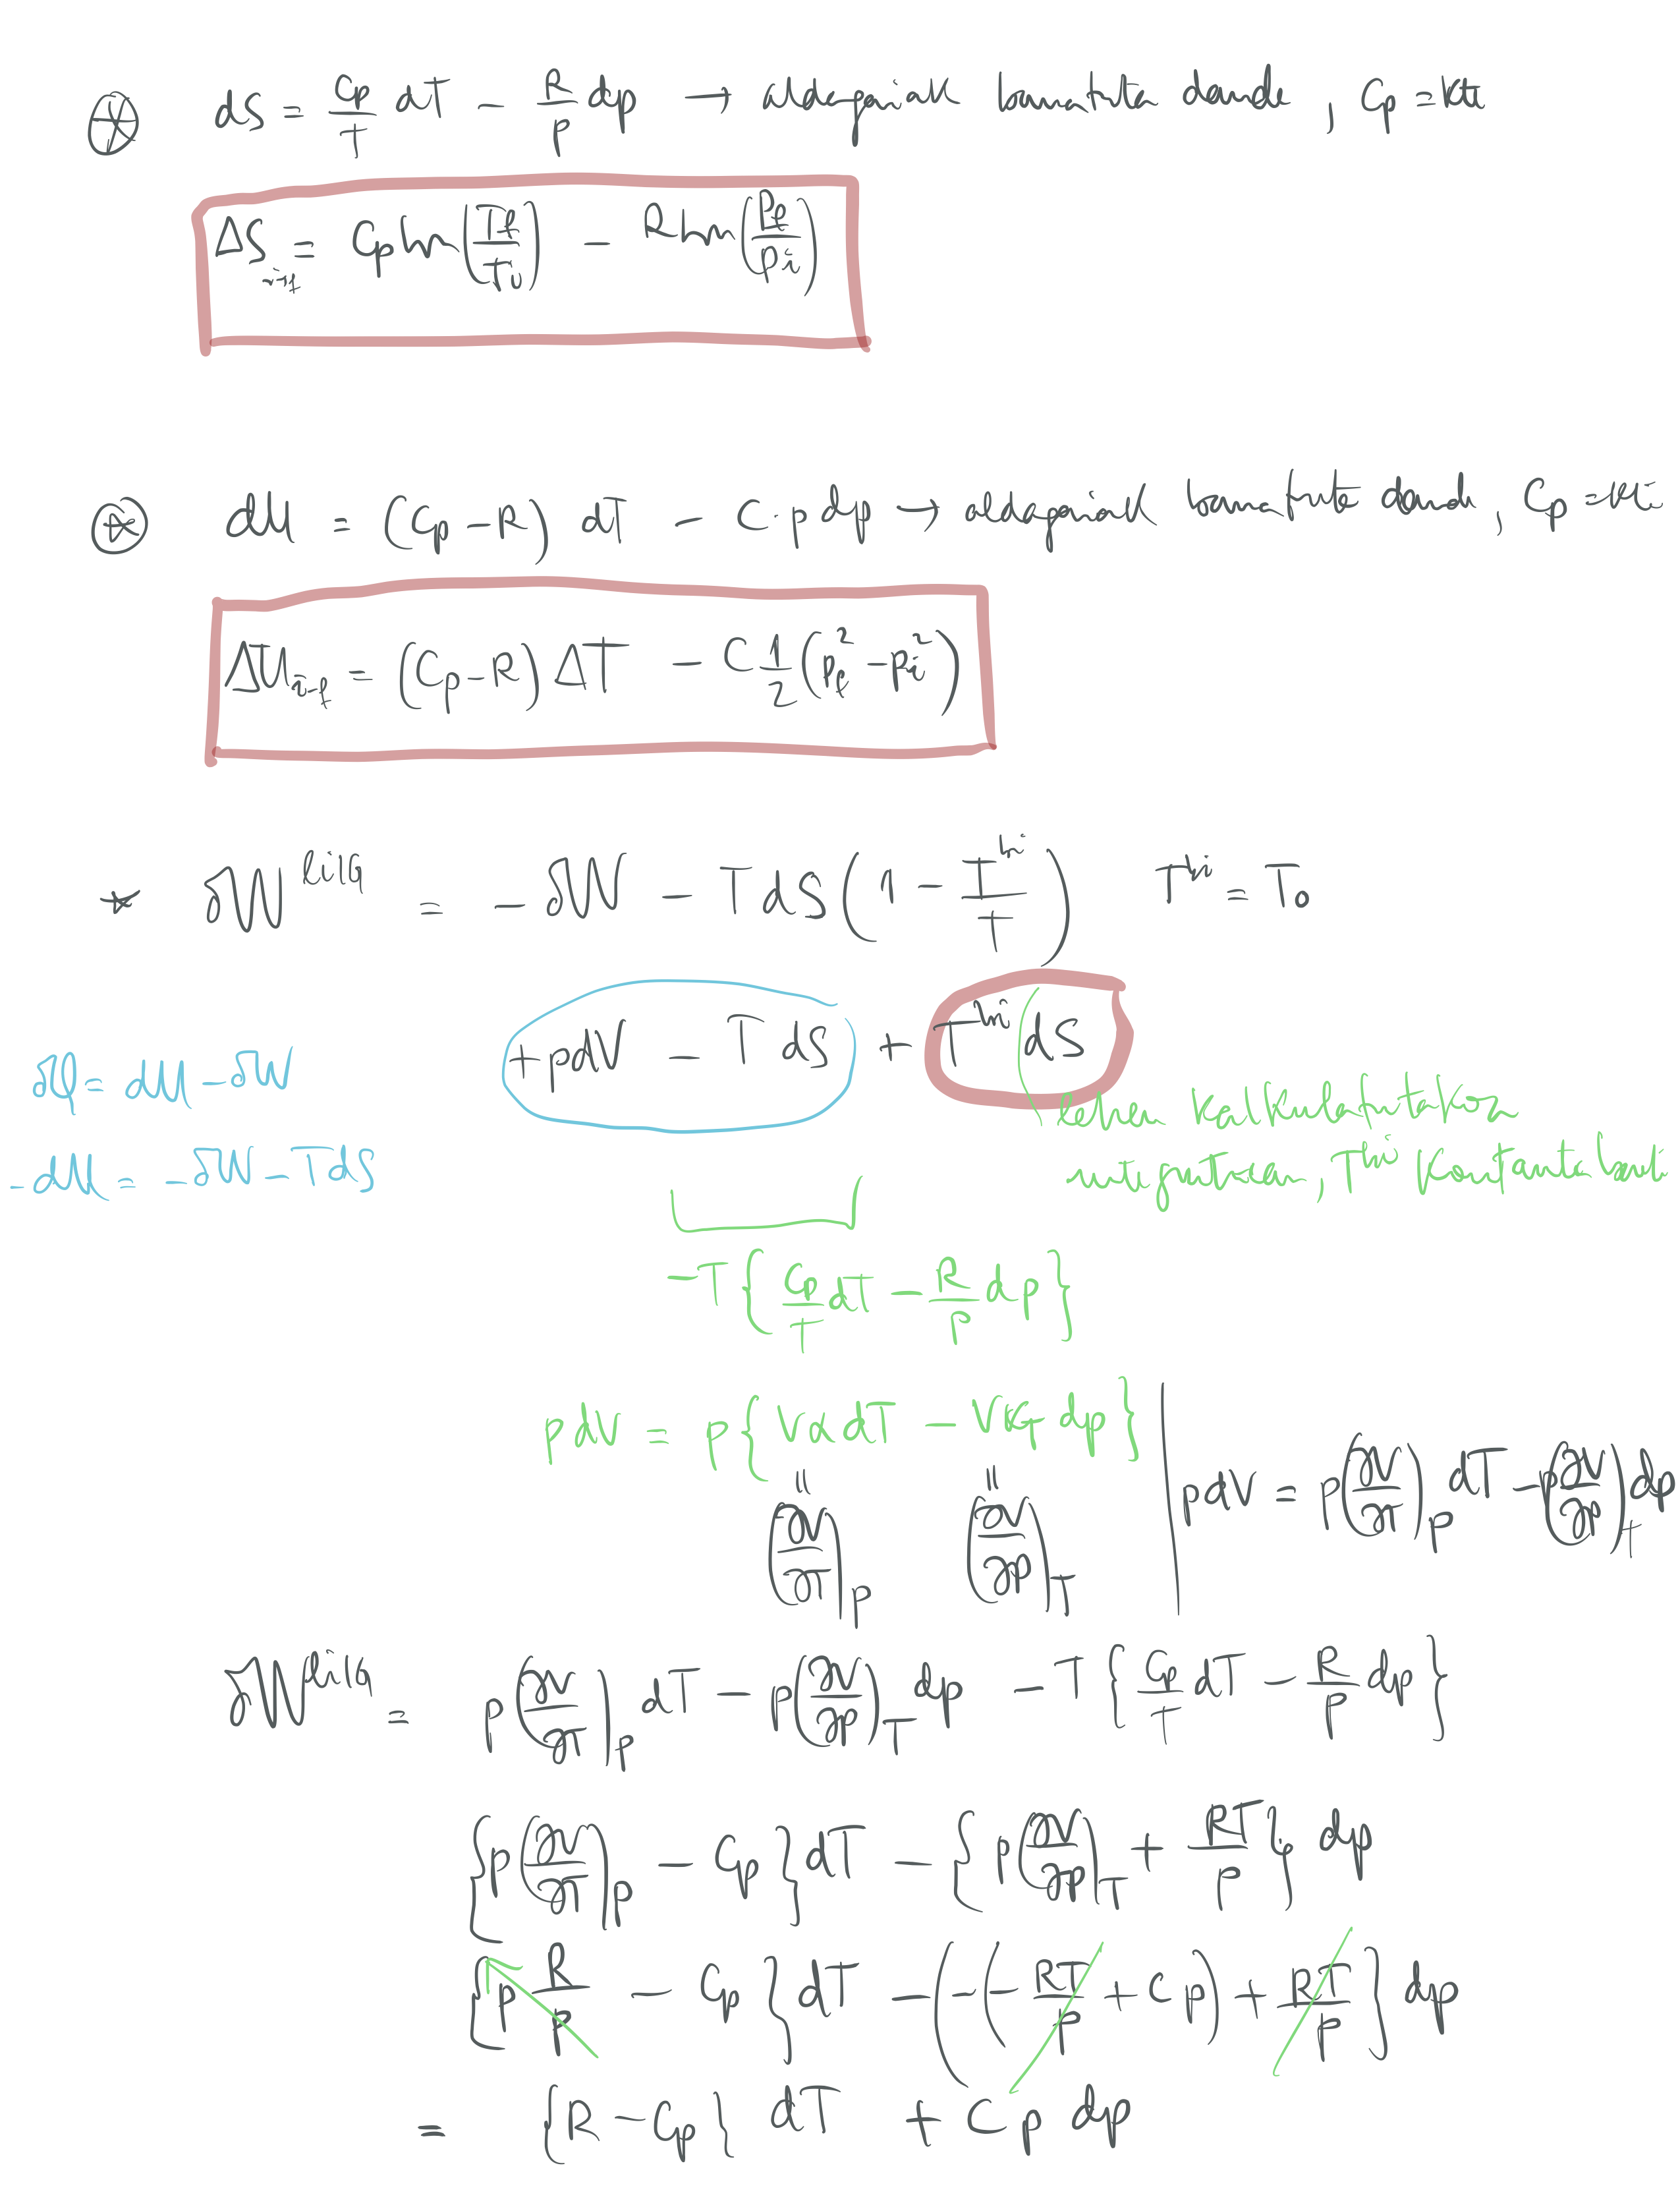 ⊛ dS = Cp/T dT − R/p dp → aldagaiak bananduta daude, Cp = kte
ΔS_{i→f} = Cp ln(Tf/Ti) − R ln(Pf/Pi)
⊛ dU = (Cp − R) dT − C·p dp → aldagaiak bananduta daude, Cp =
ΔU_{i→f} = (Cp − R) ΔT − C 1/2 (pf² − pi²)
* δW^{lilq} = − δW − T dS (1 − T^{hi}/T)    T^{hi} = T₀
+ pdV − T dS + T^{hi} dS
δQ = dU − δW
lehen kalkulatutakoa
− dU = − δW − T dS
, T^{hi} konstantea
−T { Cp/T dT − R/p dp }
p dV = p { Vα dT − Vκ_T dp }
= (∂V/∂T)_p    = (∂V/∂p)_T
p dV = p (∂V/∂T)_p dT − p (∂V/∂p)_T dp
δW^{lilq} = p (∂V/∂T)_p dT − p (∂V/∂p)_T dp − T { Cp/T dT − R/p dp }
{ p (∂V/∂T)_p − Cp } dT − { p (∂V/∂p)_T + RT/p } dp
{ p R/p − Cp } dT − ( − ( − RT/p + C p ) + RT/p } dp
= { R − Cp } dT + C p dp